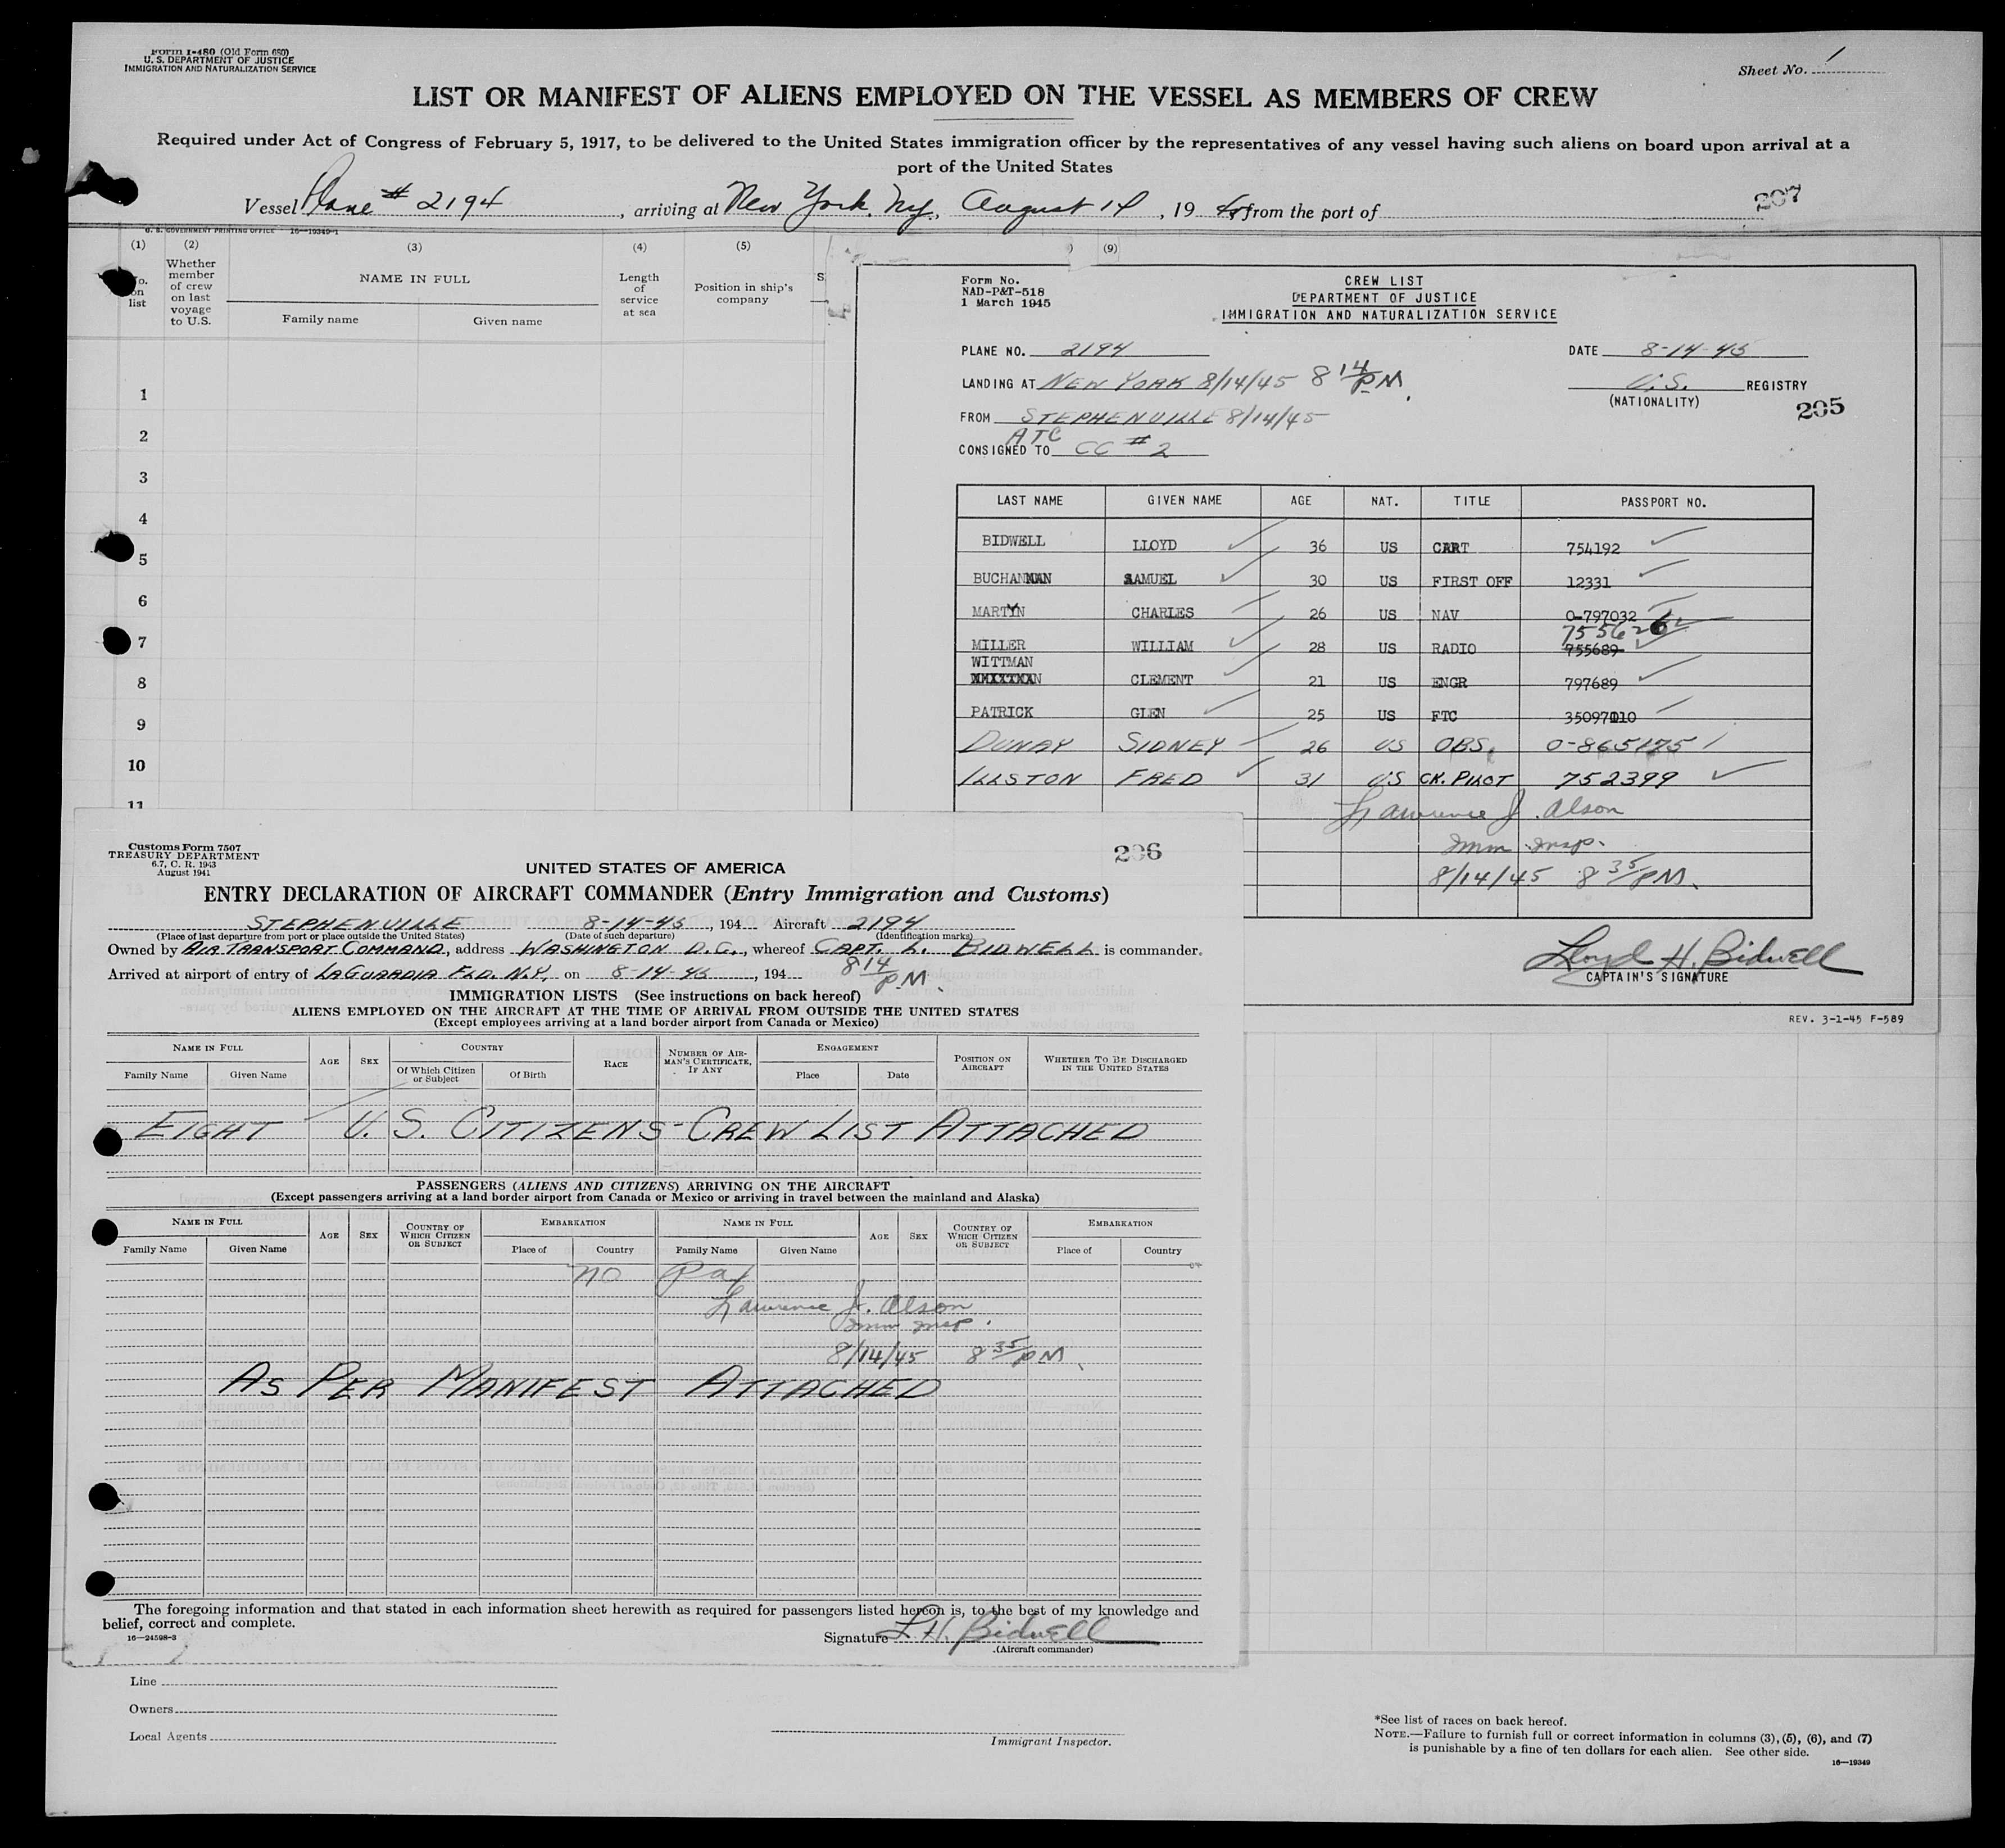 Form I-480 (Old Form 680)
U. S. DEPARTMENT OF JUSTICE
IMMIGRATION AND NATURALIZATION SERVICE
Sheet No. 1
LIST OR MANIFEST OF ALIENS EMPLOYED ON THE VESSEL AS MEMBERS OF CREW
Required under Act of Congress of February 5, 1917, to be delivered to the United States immigration officer by the representatives of any vessel having such aliens on board upon arrival at a
port of the United States
Vessel Plane # 2194, arriving at New York, NY, August 14, 19 45 from the port of
207
U. S. GOVERNMENT PRINTING OFFICE 16—19349-1
(1) (2) (3) (4) (5) (9)
No. on list
Whether member of crew on last voyage to U.S.
NAME IN FULL
Family name Given name
Length of service at sea
Position in ship's company
S
1
2
3
4
5
6
7
8
9
10
11
Form No.
NAD-P&T-518
1 March 1945
CREW LIST
DEPARTMENT OF JUSTICE
IMMIGRATION AND NATURALIZATION SERVICE
PLANE NO. 2194 DATE 8-14-45
LANDING AT NEW YORK 8/14/45 8 14 PM. U.S. REGISTRY
(NATIONALITY)
205
FROM STEPHENVILLE 8/14/45
ATC
CONSIGNED TO CC # 2
LAST NAME GIVEN NAME AGE NAT. TITLE PASSPORT NO.
BIDWELL LLOYD 36 US CAPT 754192
BUCHANAN SAMUEL 30 US FIRST OFF 12331
MARTYN CHARLES 26 US NAV 0-797032
755626
MILLER WILLIAM 28 US RADIO 755689
WITTMAN
CLEMENT 21 US ENGR 797689
PATRICK GLEN 25 US FTC 35097010
DUNAY SIDNEY 26 US OBS. 0-865175
ILLSTON FRED 31 US CK. PILOT 752399
Lawrence J. Alson
Imm. Insp.
8/14/45 8 35 PM.
Lloyd H. Bidwell
CAPTAIN'S SIGNATURE
REV. 3-1-45 F-589
Customs Form 7507
TREASURY DEPARTMENT
6.7, C. R. 1943
August 1941
206
UNITED STATES OF AMERICA
ENTRY DECLARATION OF AIRCRAFT COMMANDER (Entry Immigration and Customs)
STEPHENVILLE 8-14-45, 194 Aircraft 2194
(Place of last departure from port or place outside the United States) (Date of such departure) (Identification marks)
Owned by AIR TRANSPORT COMMAND, address WASHINGTON D.C., whereof CAPT. L. BIDWELL is commander.
Arrived at airport of entry of LAGUARDIA FLD. N.Y. on 8-14-45, 194 8 14 PM.
IMMIGRATION LISTS (See instructions on back hereof)
ALIENS EMPLOYED ON THE AIRCRAFT AT THE TIME OF ARRIVAL FROM OUTSIDE THE UNITED STATES
(Except employees arriving at a land border airport from Canada or Mexico)
NAME IN FULL AGE SEX COUNTRY RACE NUMBER OF AIRMAN'S CERTIFICATE, IF ANY ENGAGEMENT POSITION ON AIRCRAFT WHETHER TO BE DISCHARGED IN THE UNITED STATES
Family Name Given Name Of Which Citizen or Subject Of Birth Place Date
EIGHT U. S. CITIZENS - CREW LIST ATTACHED
PASSENGERS (ALIENS AND CITIZENS) ARRIVING ON THE AIRCRAFT
(Except passengers arriving at a land border airport from Canada or Mexico or arriving in travel between the mainland and Alaska)
NAME IN FULL AGE SEX COUNTRY OF WHICH CITIZEN OR SUBJECT EMBARKATION NAME IN FULL AGE SEX COUNTRY OF WHICH CITIZEN OR SUBJECT EMBARKATION
Family Name Given Name Place of Country Family Name Given Name Place of Country
no Pax
Lawrence J. Alson
Imm Insp.
8/14/45 8 35 PM.
AS PER MANIFEST ATTACHED
The foregoing information and that stated in each information sheet herewith as required for passengers listed hereon is, to the best of my knowledge and
belief, correct and complete.
16—24598-3
Signature L H. Bidwell
(Aircraft commander)
Line
Owners
Local Agents
Immigrant Inspector.
*See list of races on back hereof.
NOTE.—Failure to furnish full or correct information in columns (3), (5), (6), and (7)
is punishable by a fine of ten dollars for each alien. See other side.
16—19349